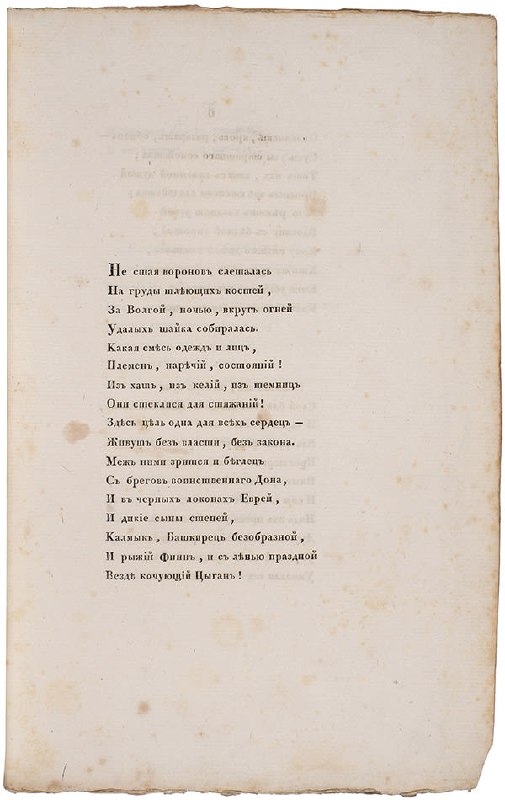 Не стая вороновъ слеталась
На груды тлѣющихъ костей,
За Волгой, ночью, вкругъ огней
Удалыхъ шайка собиралась.
Какая смѣсь одеждъ и лицъ,
Племенъ, нарѣчій, состояній!
Изъ хатъ, изъ келій, изъ темницъ
Они стеклися для стяжаній!
Здѣсь цѣль одна для всѣхъ сердецъ —
Живутъ безъ власти, безъ закона.
Межъ ними зрится и бѣглецъ
Съ бреговъ воинственнаго Дона,
И въ черныхъ локонахъ Еврей,
И дикіе сыны степей,
Калмыкъ, Башкирецъ безобразной,
И рыжій Финнъ, и съ лѣнью праздной
Вездѣ кочующій Цыганъ!